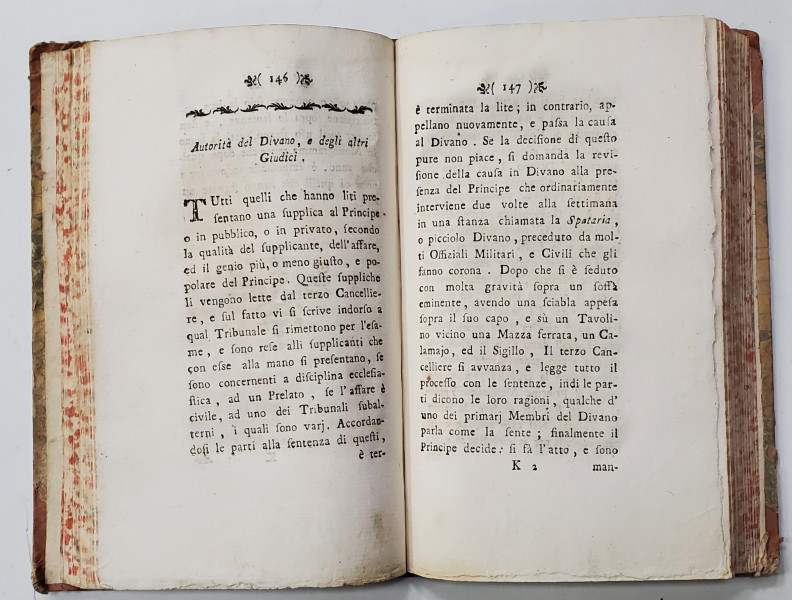 ( 146 )
Autorità del Divano, e degli altri
Giudici.
TUtti quelli che hanno liti pre-
ſentano una ſupplica al Principe
o in pubblico, o in privato, ſecondo
la qualità del ſupplicante, dell'affare,
ed il genio più, o meno giuſto, e po-
polare del Principe. Queſte ſuppliche
li vengono lette dal terzo Cancellie-
re, e ſul fatto vi ſi ſcrive indorſo a
qual Tribunale ſi rimettono per l'eſa-
me, e ſono reſe alli ſupplicanti che
con eſſe alla mano ſi preſentano, ſe
ſono concernenti a diſciplina eccleſia-
ſtica, ad un Prelato, ſe l'affare è
civile, ad uno dei Tribunali ſubal-
terni, i quali ſono varj. Accordan-
doſi le parti alla ſentenza di queſti,
è ter-
( 147 )
è terminata la lite; in contrario, ap-
pellano nuovamente, e paſſa la cauſa
al Divano. Se la deciſione di queſto
pure non piace, ſi domanda la revi-
ſione della cauſa in Divano alla pre-
ſenza del Principe che ordinariamente
interviene due volte alla ſettimana
in una ſtanza chiamata la Spataria,
o picciolo Divano, preceduto da mol-
ti Offiziali Militari, e Civili che gli
fanno corona. Dopo che ſi è ſeduto
con molta gravità ſopra un ſoffà
eminente, avendo una ſciabla appeſa
ſopra il ſuo capo, e sù un Tavoli-
no vicino una Mazza ferrata, un Ca-
lamajo, ed il Sigillo, Il terzo Can-
celliere ſi avvanza, e legge tutto il
proceſſo con le ſentenze, indi le par-
ti dicono le loro ragioni, qualche d'
uno dei primarj Membri del Divano
parla come la ſente; finalmente il
Principe decide: ſi fà l'atto, e ſono
K 2 man-